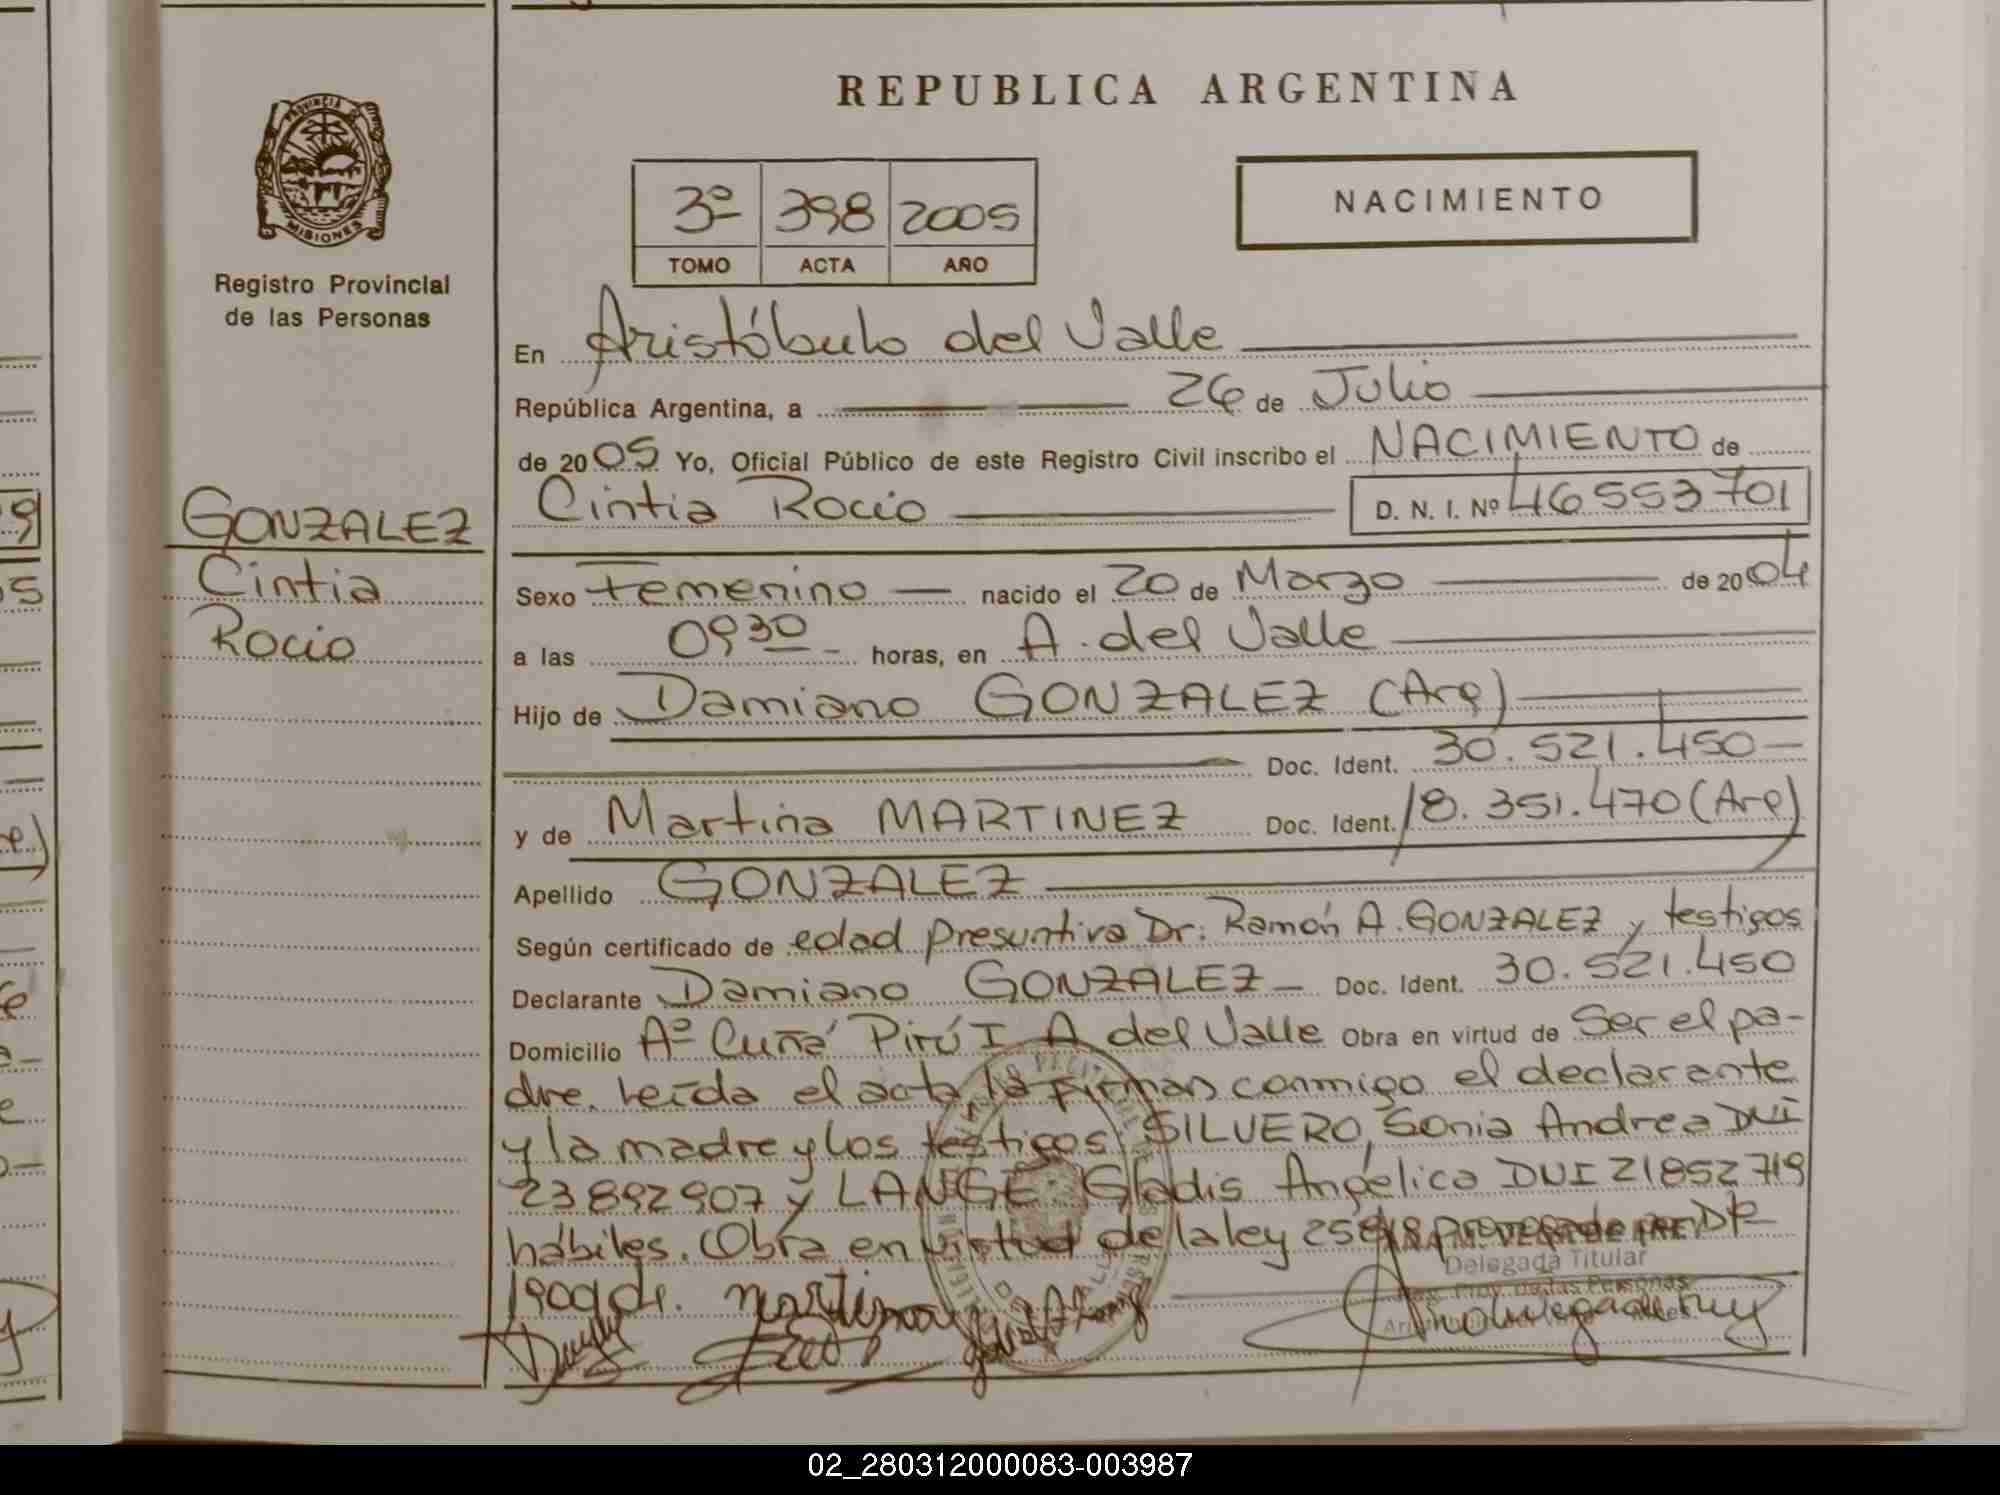 REPUBLICA ARGENTINA
PROVINCIA
MISIONES
Registro Provincial
de las Personas
3º 398 2005
TOMO ACTA AÑO
NACIMIENTO
En Aristóbulo del Valle
República Argentina, a 26 de Julio
de 2005 Yo, Oficial Público de este Registro Civil inscribo el NACIMIENTO de
Cintia Rocio D. N. I. Nº 46553701
GONZALEZ
Cintia
Rocio
Sexo Femenino nacido el 20 de Marzo de 2004
a las 0930 horas, en A. del Valle
Hijo de Damiano GONZALEZ (Arg)
Doc. Ident. 30.521.450
y de Martina MARTINEZ Doc. Ident. 18.351.470 (Arg)
Apellido GONZALEZ
Según certificado de edad presuntiva Dr: Ramón A. GONZALEZ y testigos
Declarante Damiano GONZALEZ Doc. Ident. 30.521.450
Domicilio Aº Cuña Pirú I A del Valle Obra en virtud de Ser el pa-
dre. Leída el acta la firman conmigo el declarante
y la madre y los testigos SILVERO, Sonia Andrea DNI
23892907 y LANGE Gladis Angélica DNI 21852719
hábiles. Obra en virtud de la ley 25818 por DR
1909 04.
Delegada Titular
Reg. Prov. de las Personas
02_280312000083-003987